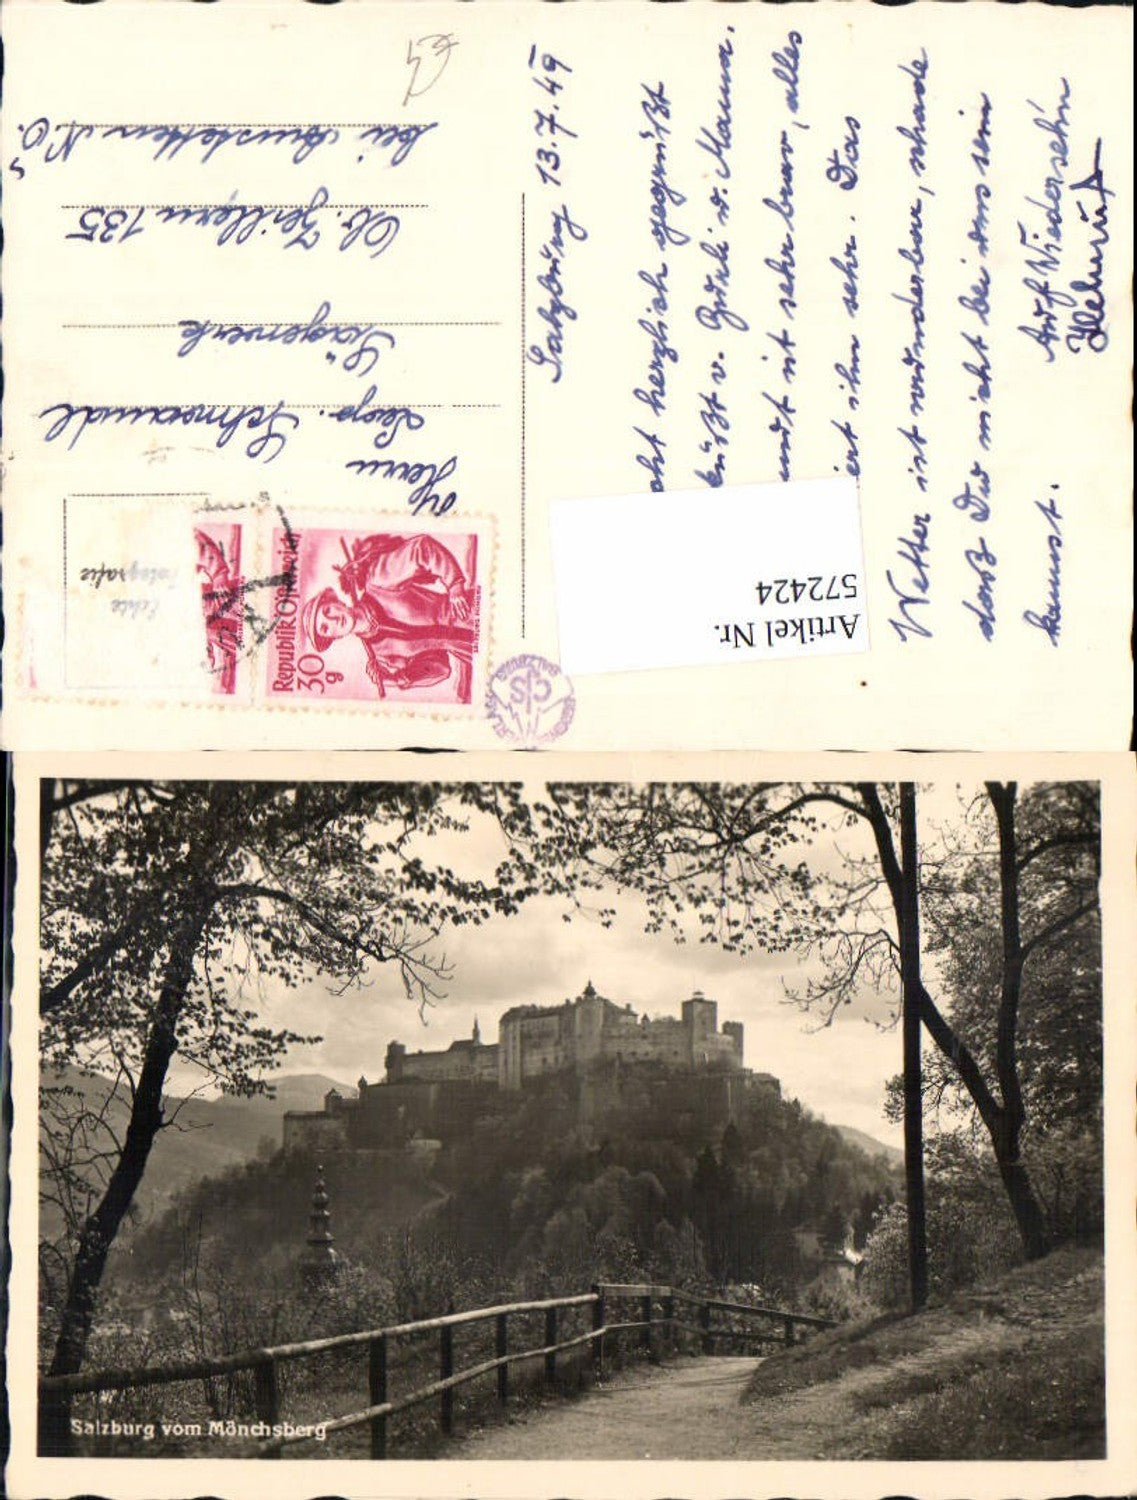 Salzburg 13.7.49
cht herzlich gegrüßt
küßt v. Burli u. Mama.
undt ist sehr brav, alles
ert ihm sehr. Das
Wetter ist wunderbar, schade
daß Du nicht bei uns sein
kannst. Auf Wiedersehn
Helmut
Herrn
Leop. Schmeandl
Sägewerk
Ob. Zeillern 135
bei Amstetten N.Ö.
Echte
Fotografie
Republik Österreich
30
g
SALZBURG
CJS
Artikel Nr.
572424
Salzburg vom Mönchsberg